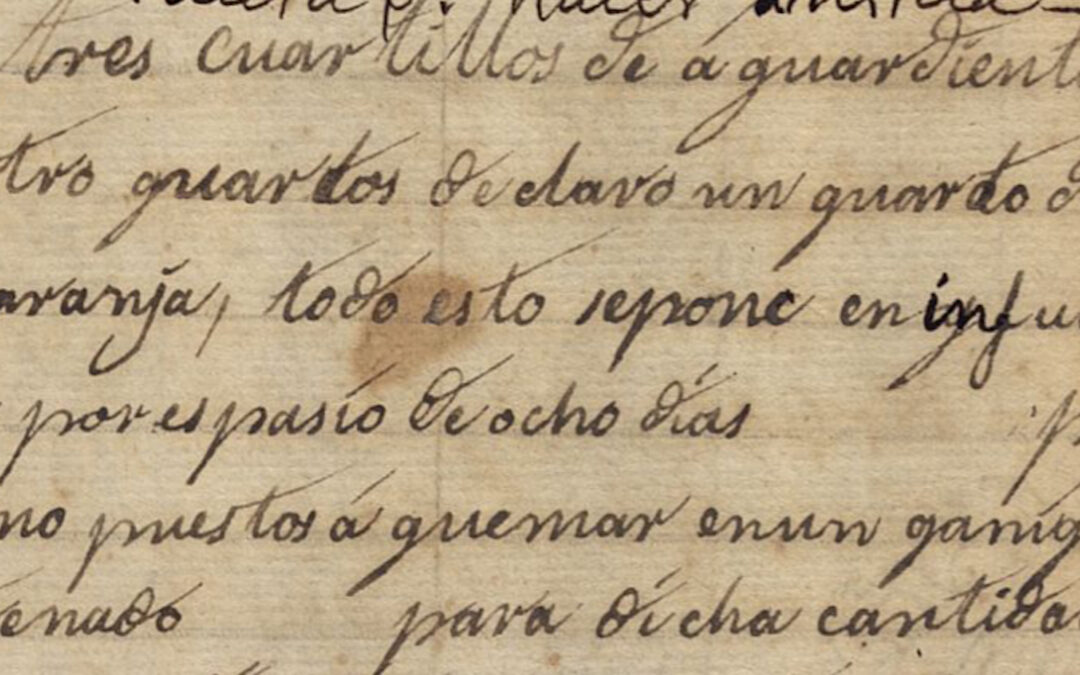 tres cuartillos de aguardient
tro quartos de clavo un quarto d
aranja, todo esto se pone en infu
por espasio de ocho días
no puestos á quemar en un ganig
enado para dicha cantida